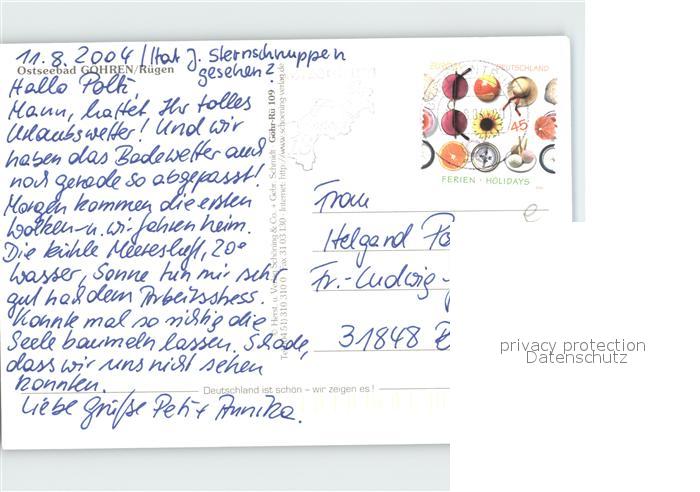 11.8.2004 / Hat J. Sternschnuppen
gesehen?
Ostseebad GÖHREN/Rügen
Hallo Polti,
Mann, hattet Ihr tolles
Urlaubswetter! Und wir
haben das Badewetter auch
noch gerade so abgepasst!
Morgen kommen die ersten
Wolken - u. wir fahren heim.
Die kühle Meeresluft, 20°
Wasser, Sonne tun mir sehr
gut nach dem Arbeitsstress.
Konnte mal so richtig die
Seele baumeln lassen. Schade,
dass wir uns nicht sehen
konnten.
Liebe Grüße Peti + Annika.
Deutschland ist schön – wir zeigen es!
Göhr-Rü 109
© Horst u. Schöning & Co. + Gebr. Schmidt
Internet: http://www.schoening-verlag.de
DEUTSCHLAND
45
FERIEN · HOLIDAYS
Frau
Helgard
Fr.-Ludwig-
31848
e
privacy protection
Datenschutz